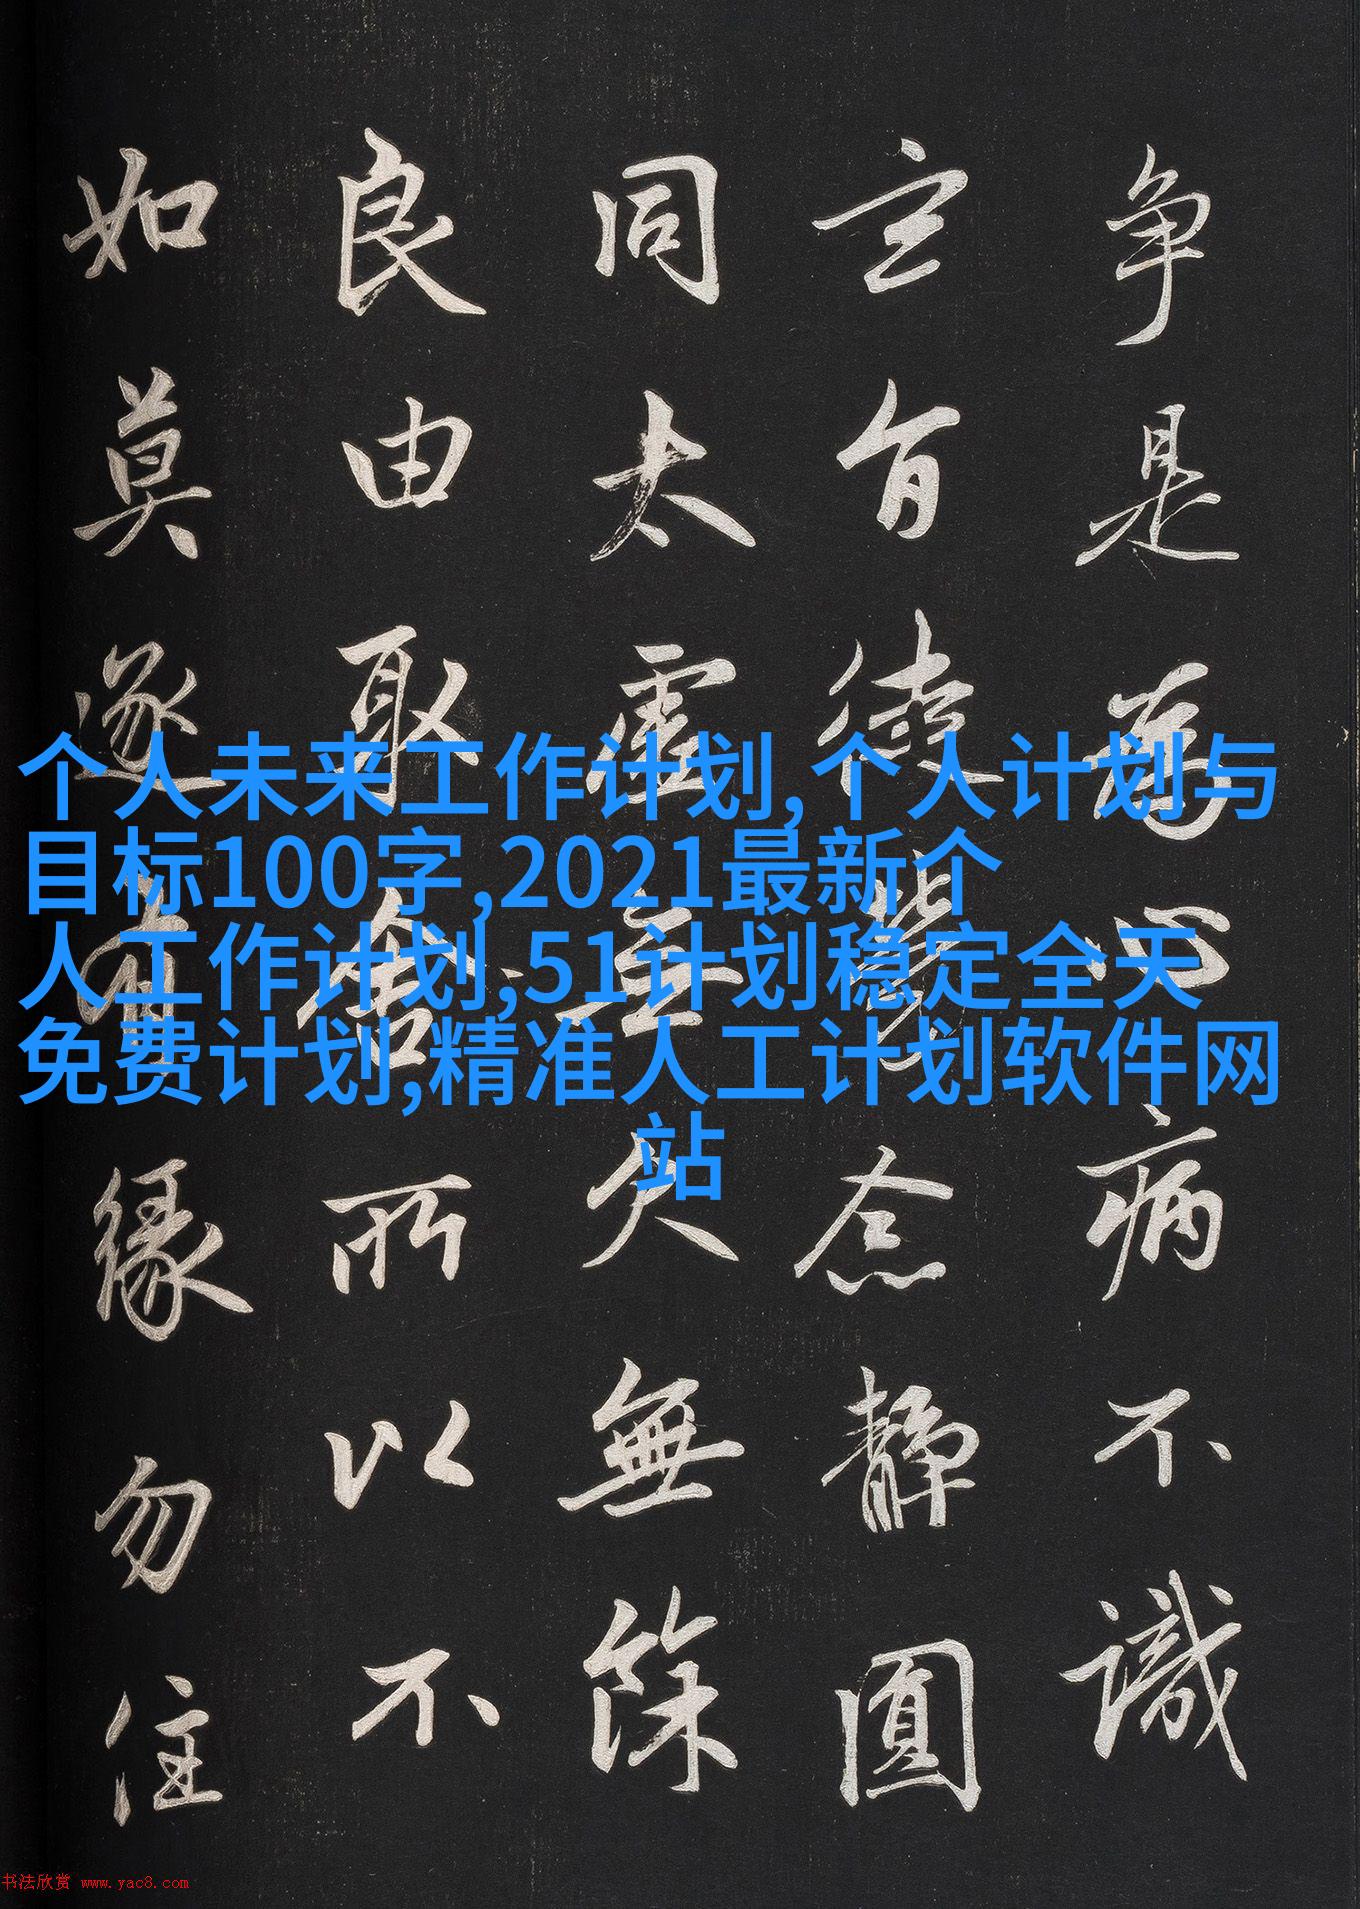 争是為心病不識
玄旨徒勞念静圓
同太虚無欠無餘
良由取舍所以不
如莫逐有縁勿住
个人未来工作计划,个人计划与
目标100字,2021最新个
人工作计划,51计划稳定全天
免费计划,精准人工计划软件网
站
书法欣赏 www.yac8.com